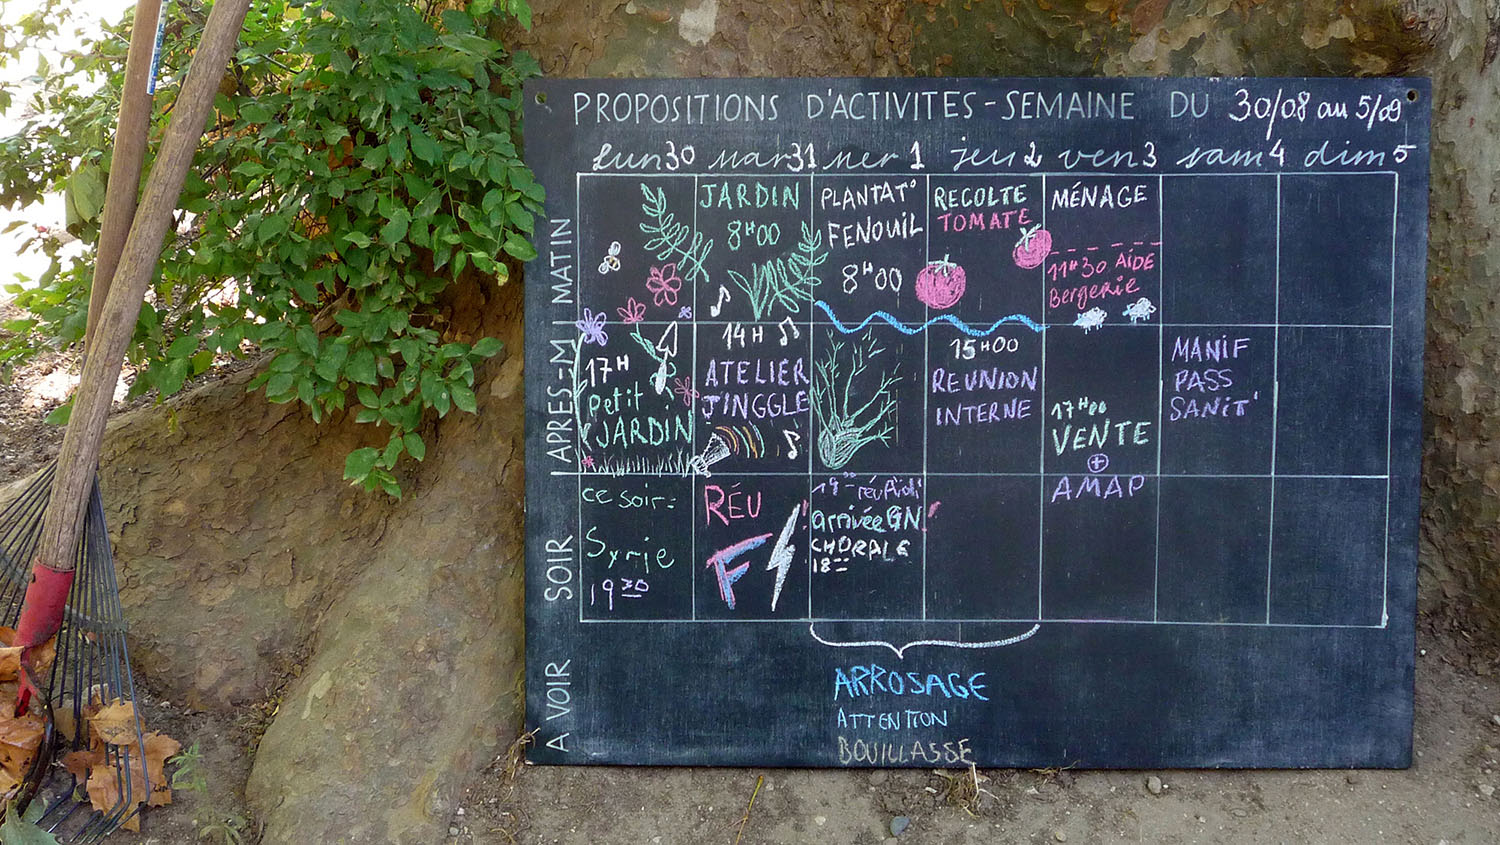 PROPOSITIONS D'ACTIVITES - SEMAINE DU 30/08 au 5/09
lun 30 mar 31 mer 1 jeu 2 ven 3 sam 4 dim 5
MATIN
JARDIN
8H00
PLANTAT°
FENOUIL
8H00
RECOLTE
TOMATE
MÉNAGE
11H30 AIDE
Bergerie
APRES-MI
17H
Petit
JARDIN
14H
ATELIER
JINGGLE
15H00
REUNION
INTERNE
17H00
VENTE
+
AMAP
MANIF
PASS
SANIT'
SOIR
ce soir:
Syrie
19 30
RÉU
F
19--
arrivée GN
CHORALE
18--
A VOIR
ARROSAGE
ATTENTION
BOUILLASSE